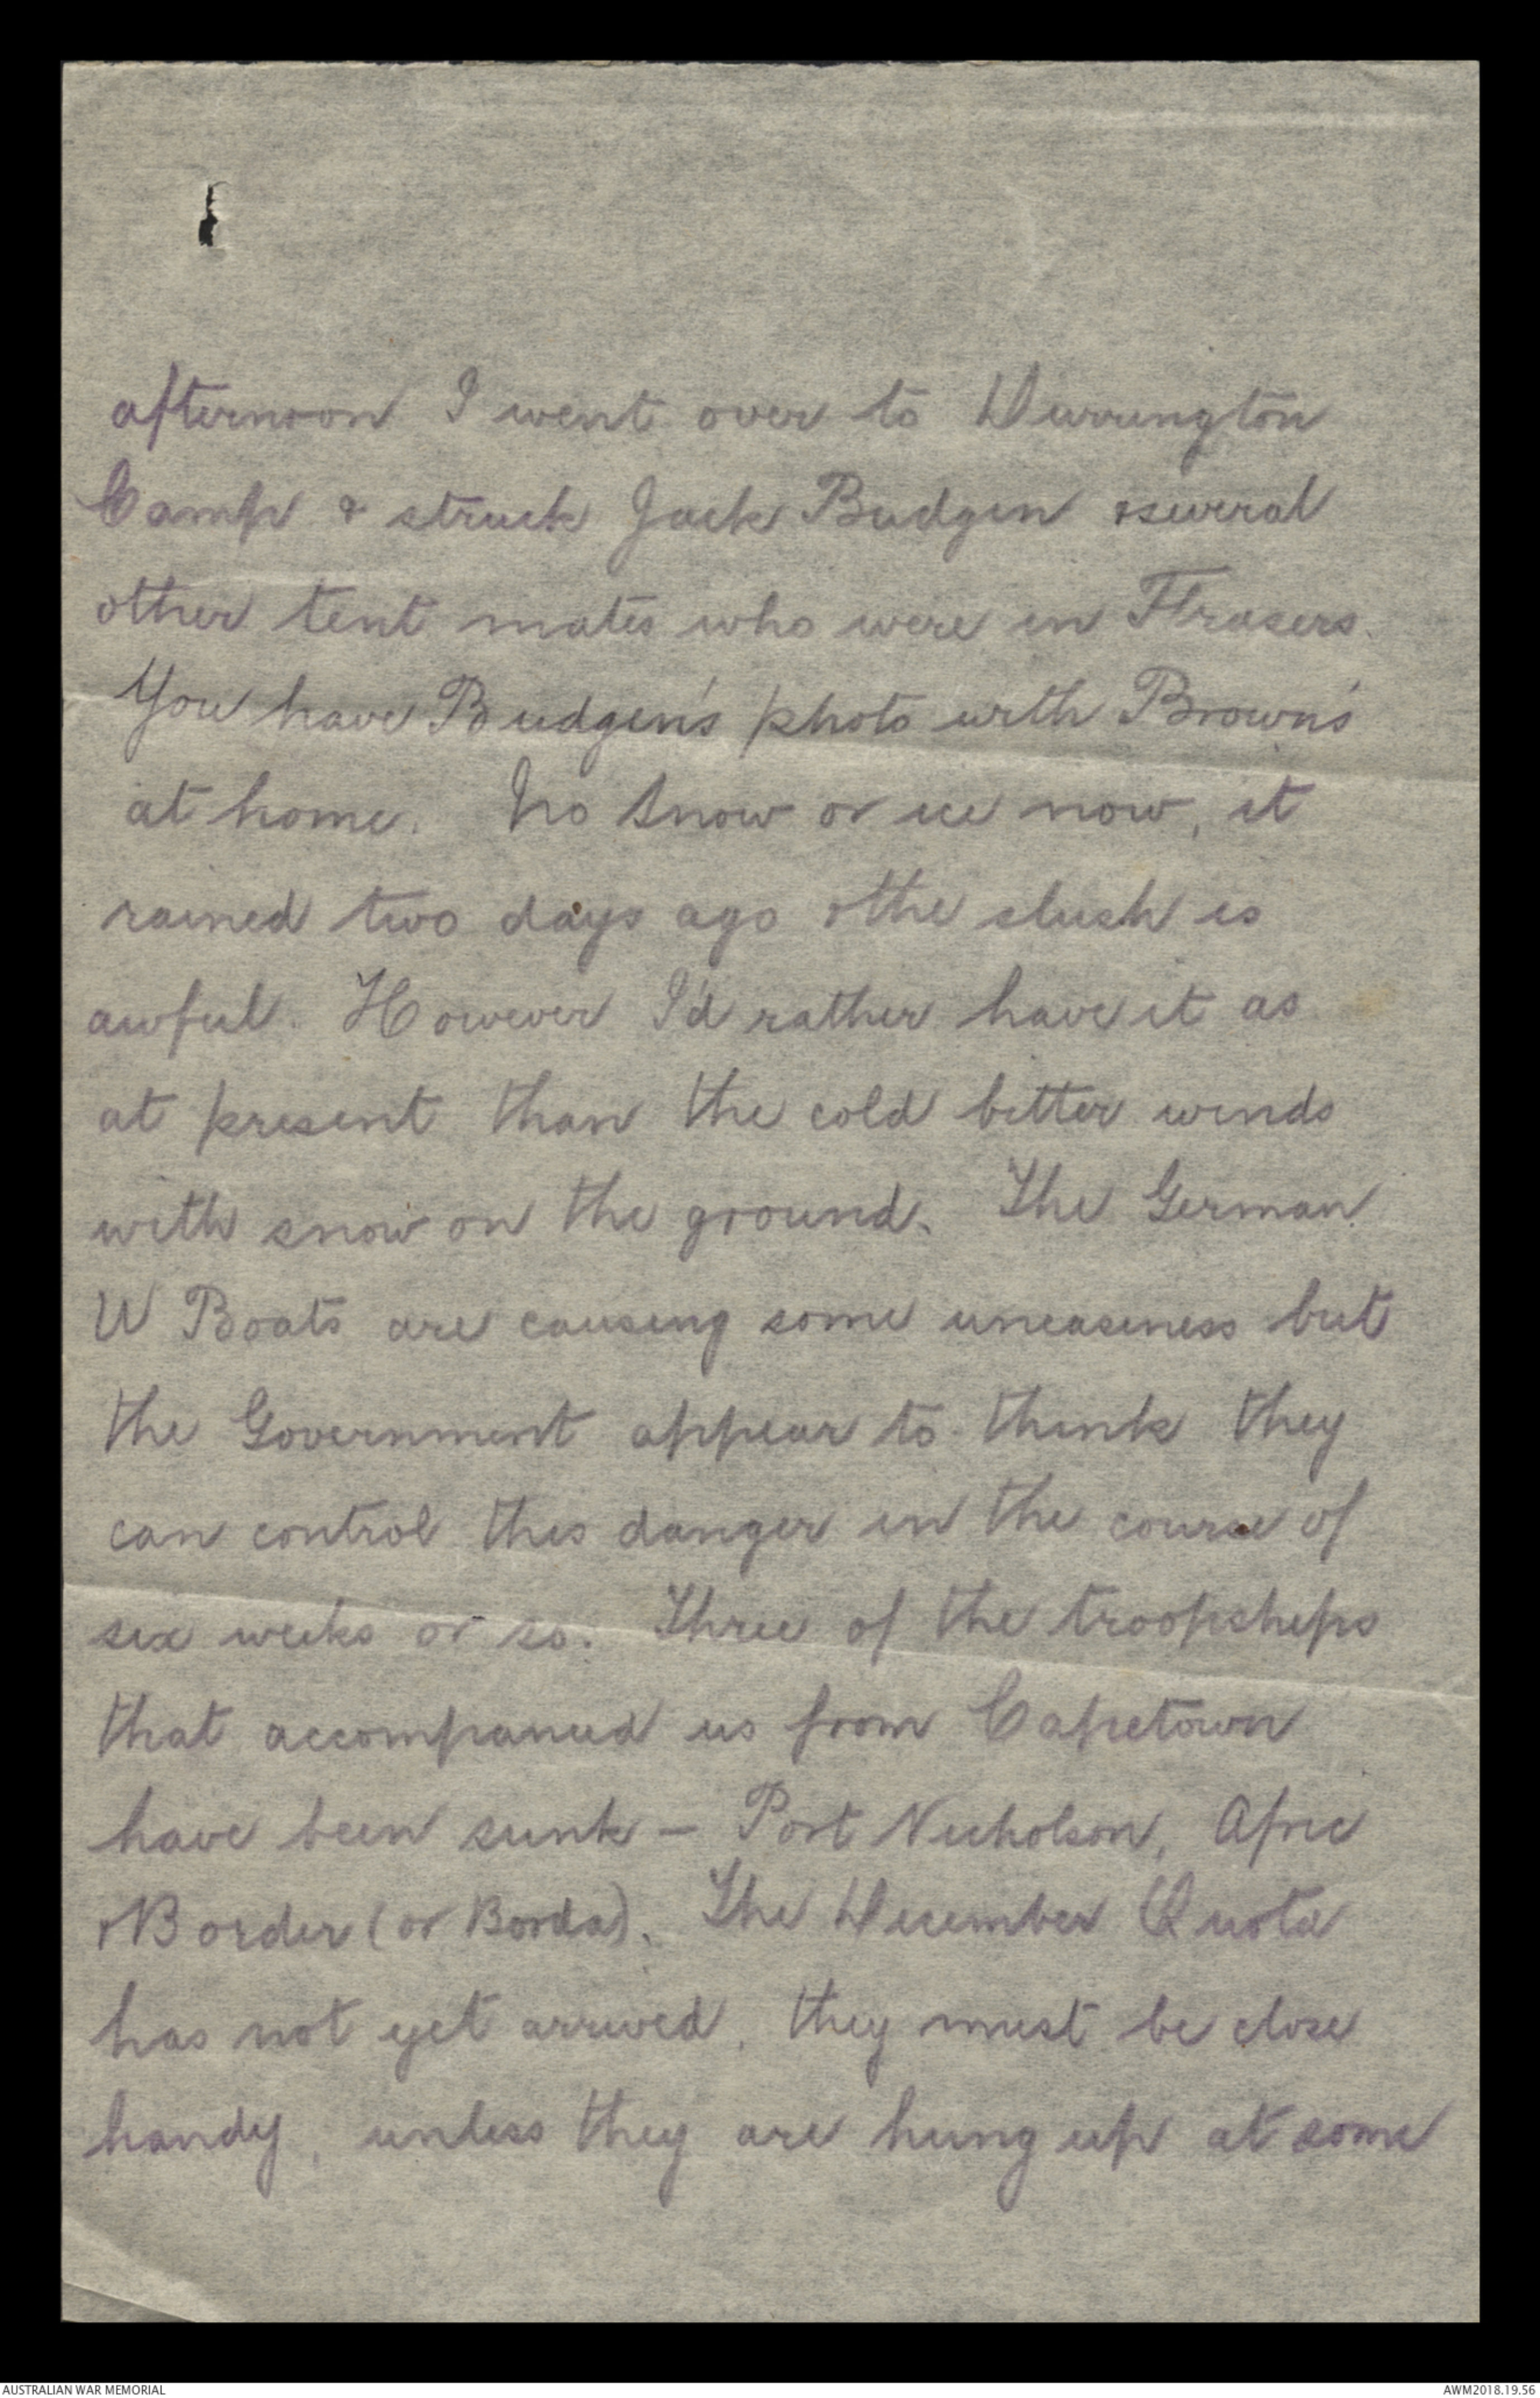 afternoon I went over to Durrington
Camp & struck Jack Budgen & several
other tent mates who were in Frasers.
You have Budgen's photo with Brown's
at home. No snow or ice now, it
rained two days ago & the slush is
awful. However I'd rather have it as
at present than the cold bitter winds
with snow on the ground. The German
U Boats are causing some uneasiness but
the Government appear to think they
can control this danger in the course of
six weeks or so. Three of the troopships
that accompanied us from Capetown
have been sunk - Port Nicholson, Afric
& Border (or Borda). The December Quota
has not yet arrived, they must be close
handy, unless they are hung up at some
AUSTRALIAN WAR MEMORIAL
AWM2018.19.56